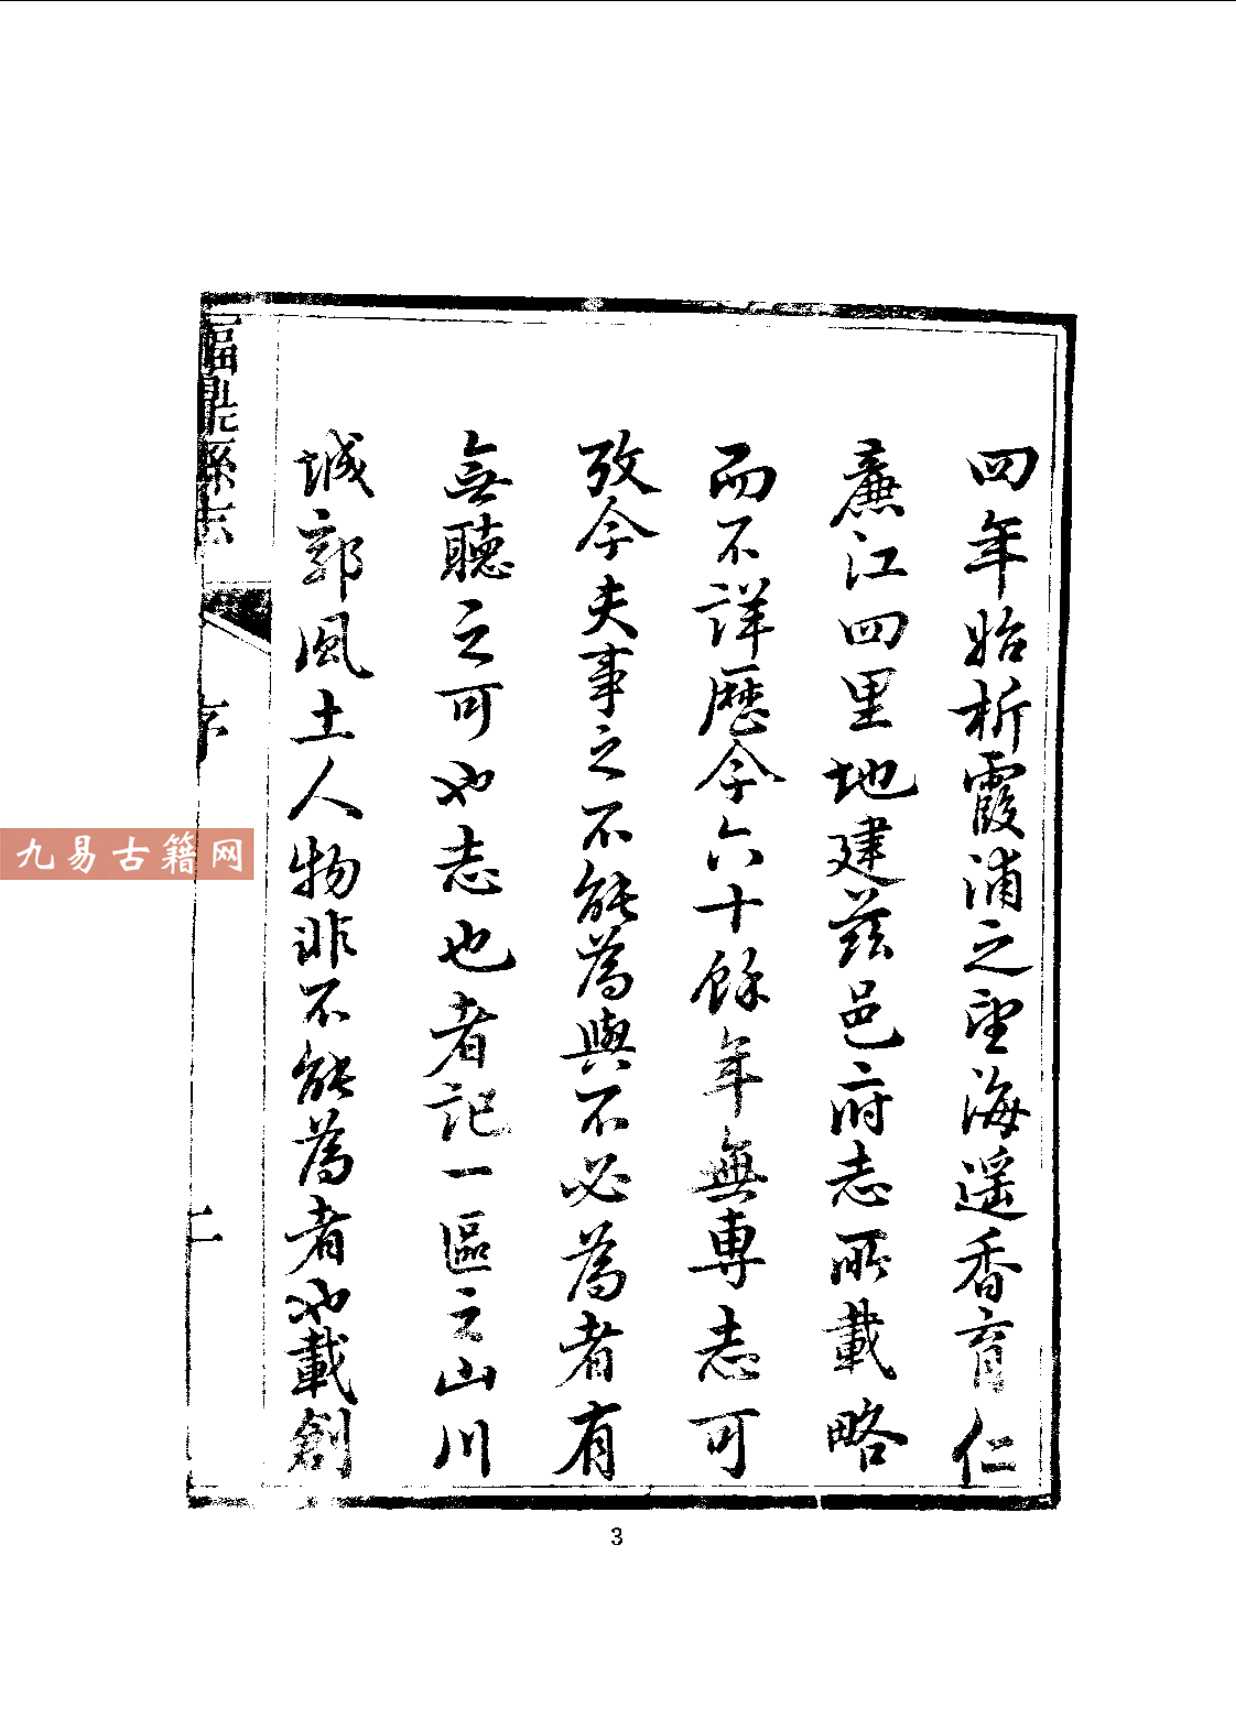 四年始析霞浦之望海遥香育仁
廉江四里地建茲邑府志所載略
而不詳歷今六十餘年無專志可
攷今夫事之不能為與不必為者有
無聽之可也志也者記一區之山川
城郭風土人物非不能為者也載創
福鼎縣志
序
二
九易古籍网
3